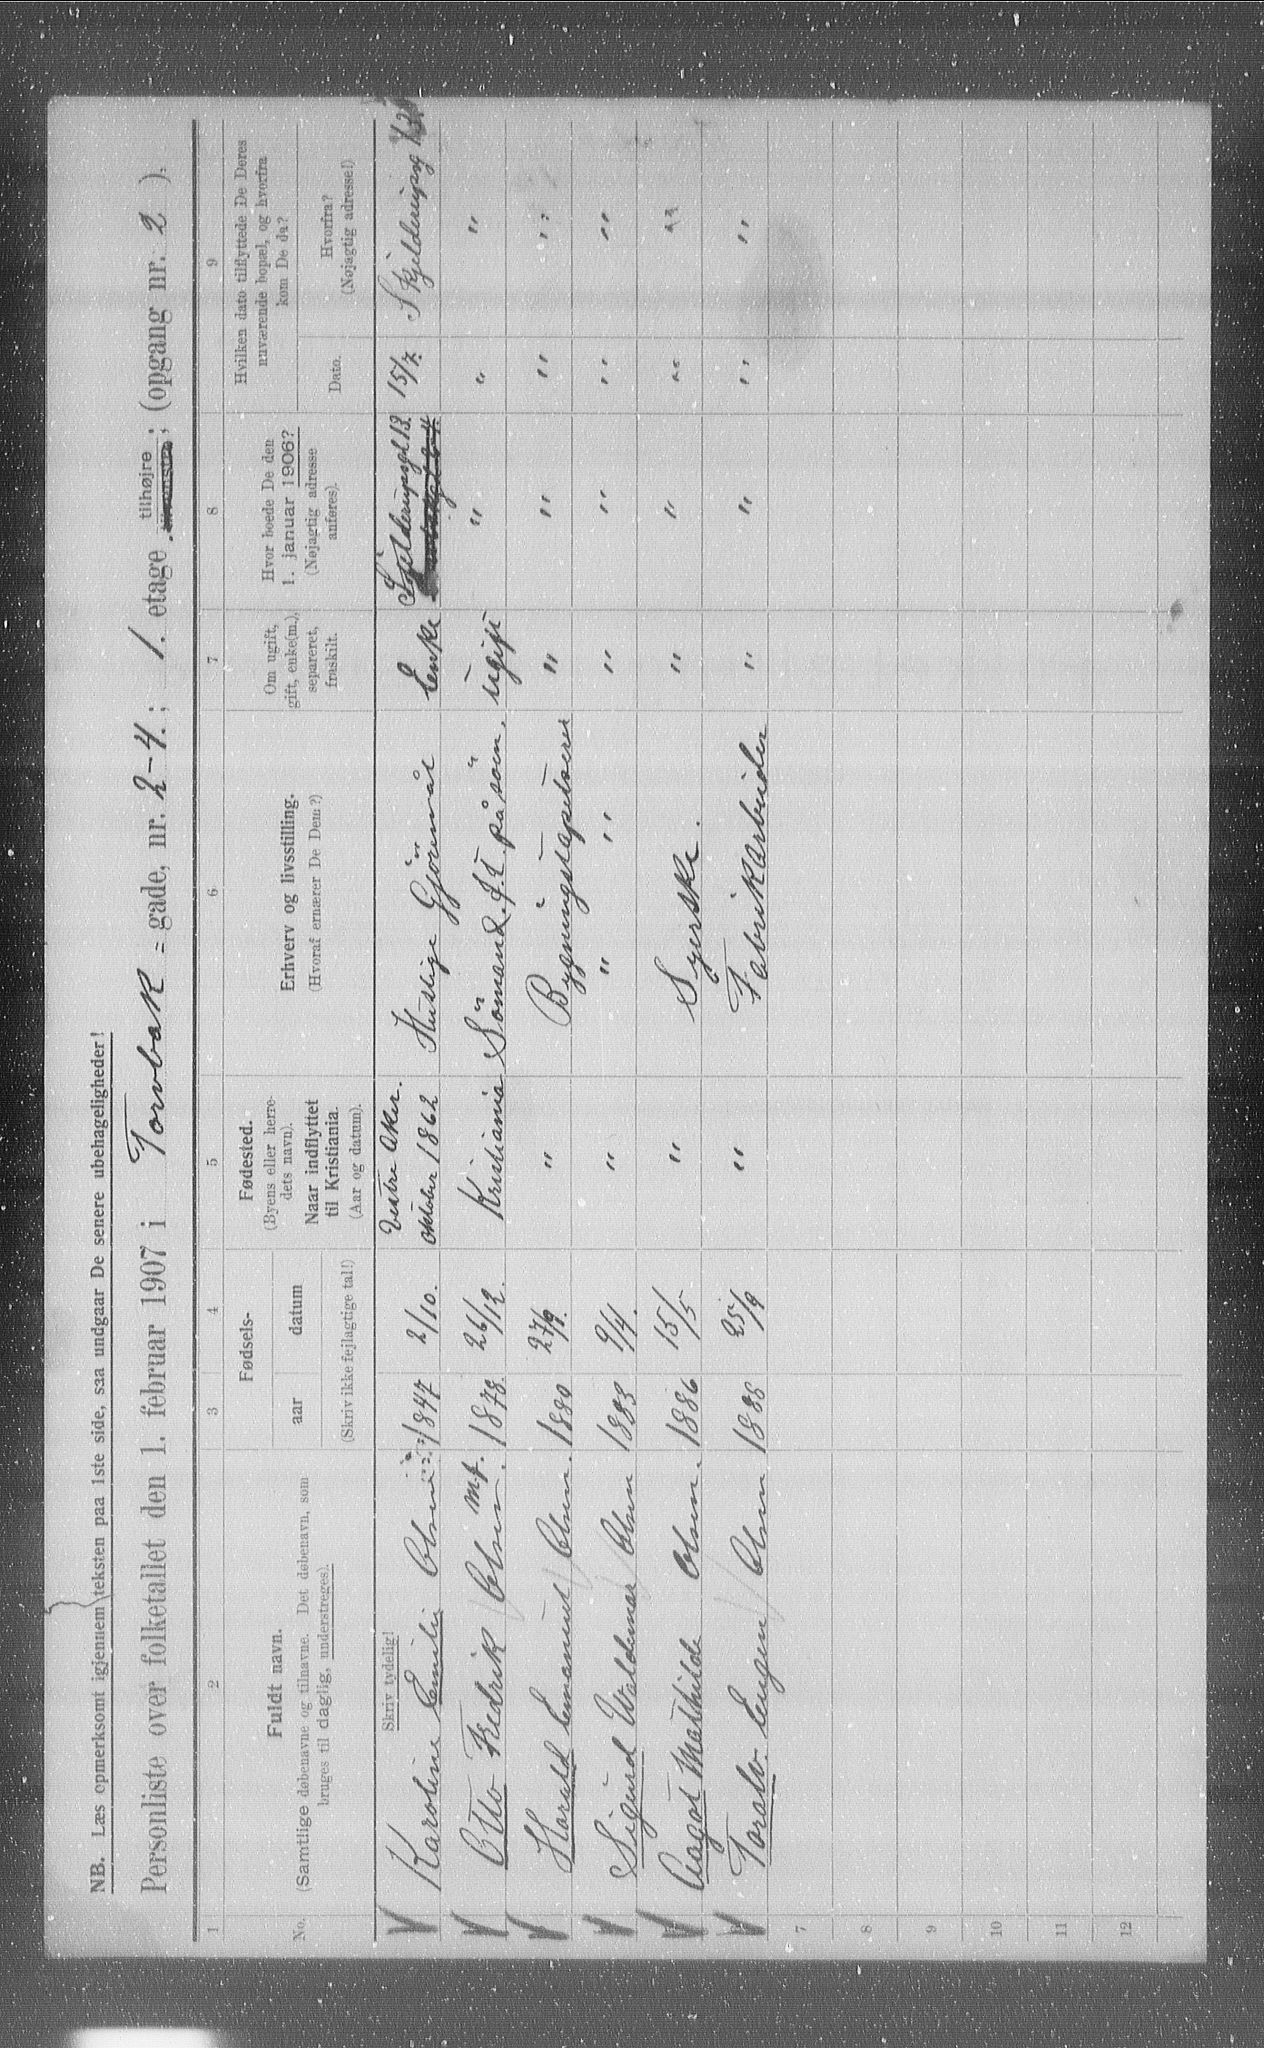 NB. Læs opmerksomt igjennem teksten paa 1ste side, saa undgaar De senere ubehageligheder!
Personliste over folketallet den 1. februar 1907 i Torvbak = gade, nr. 2-4.; 1. etage tilhøjre tilvenstre; (opgang nr. 2).
1 2 3 4 5 6 7 8 9
No.
Fuldt navn.
(Samtlige døbenavne og tilnavne. Det døbenavn, som
bruges til daglig, understreges).
Fødsels-
aar datum
(Skriv ikke fejlagtige tal!)
Fødested.
(Byens eller herre-
dets navn).
Naar indflyttet
til Kristiania.
(Aar og datum).
Erhverv og livsstilling.
(Hvoraf ernærer De Dem?)
Om ugift,
gift, enke(m.),
separeret,
fraskilt.
Hvor boede De den
1. januar 1906?
(Nøjagtig adresse
anføres).
Hvilken dato tilflyttede De Deres
nuværende bopæl, og hvorfra
kom De da?
Dato.
Hvorfra?
(Nøjagtig adresse!)
Skriv tydelig!
Karoline Emilie Olsen 1847 2/10. Vestre Aker. oktober 1862 Huslige Gjöremål Enke 15/7.
Otto Fredrik Olsen. mf. 1878. 26/12. Kristiania Sömand. f.t. på söen. ugift " " "
Harald Emanuel Olsen. 1880 27/9. " Bygningstapetserer " " " "
Sigurd Waldemar Olsen 1883 9/4. " " " " " " "
Aagot Mathilde Olsen. 1886 15/5 " Syerske. " " " "
Toralv Eugen Olsen 1888 25/9 " Fabrikarbeider " " " "
7
8
9
10
11
12